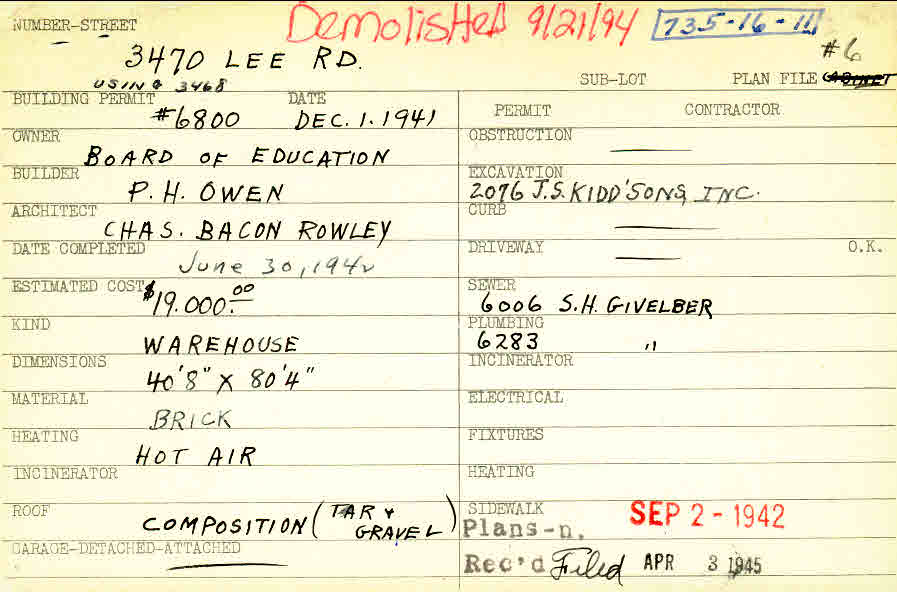 Demolished 9/21/94 735-16-11
NUMBER-STREET
3470 LEE RD. #6
USING 3468
SUB-LOT PLAN FILE CABINET
BUILDING PERMIT DATE
#6800 DEC. 1. 1941
OWNER
BOARD OF EDUCATION
BUILDER
P. H. OWEN
ARCHITECT
CHAS. BACON ROWLEY
DATE COMPLETED
June 30, 1942
ESTIMATED COST
$19.000.00
KIND
WAREHOUSE
DIMENSIONS
40'8" X 80'4"
MATERIAL
BRICK
HEATING
HOT AIR
INCINERATOR
ROOF
COMPOSITION (TAR & GRAVEL)
GARAGE-DETACHED-ATTACHED
PERMIT CONTRACTOR
OBSTRUCTION
EXCAVATION
2076 J.S. KIDD'SONS, INC.
CURB
DRIVEWAY O.K.
SEWER
6006 S.H. GIVELBER
PLUMBING
6283 "
INCINERATOR
ELECTRICAL
FIXTURES
HEATING
SIDEWALK SEP 2 - 1942
Plans-n.
Rec'd Filed APR 3 1945